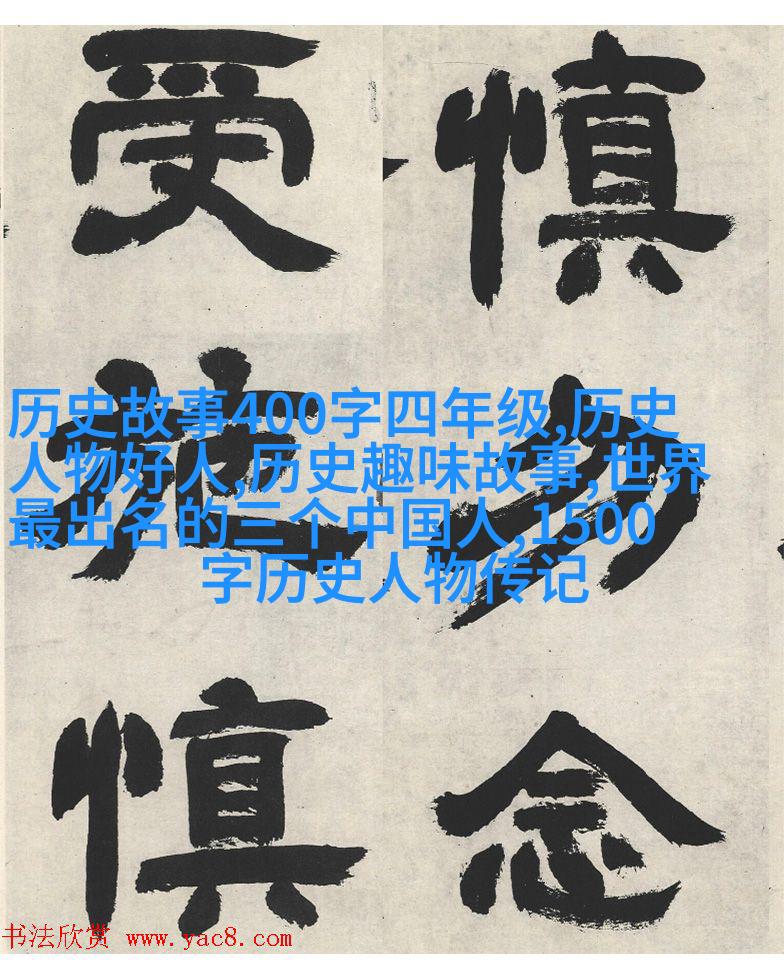 慎勿念
受施慎
历史故事400字四年级,历史
人物好人,历史趣味故事,世界
最出名的三个中国人,1500
字历史人物传记
书法欣赏 www.yac8.com